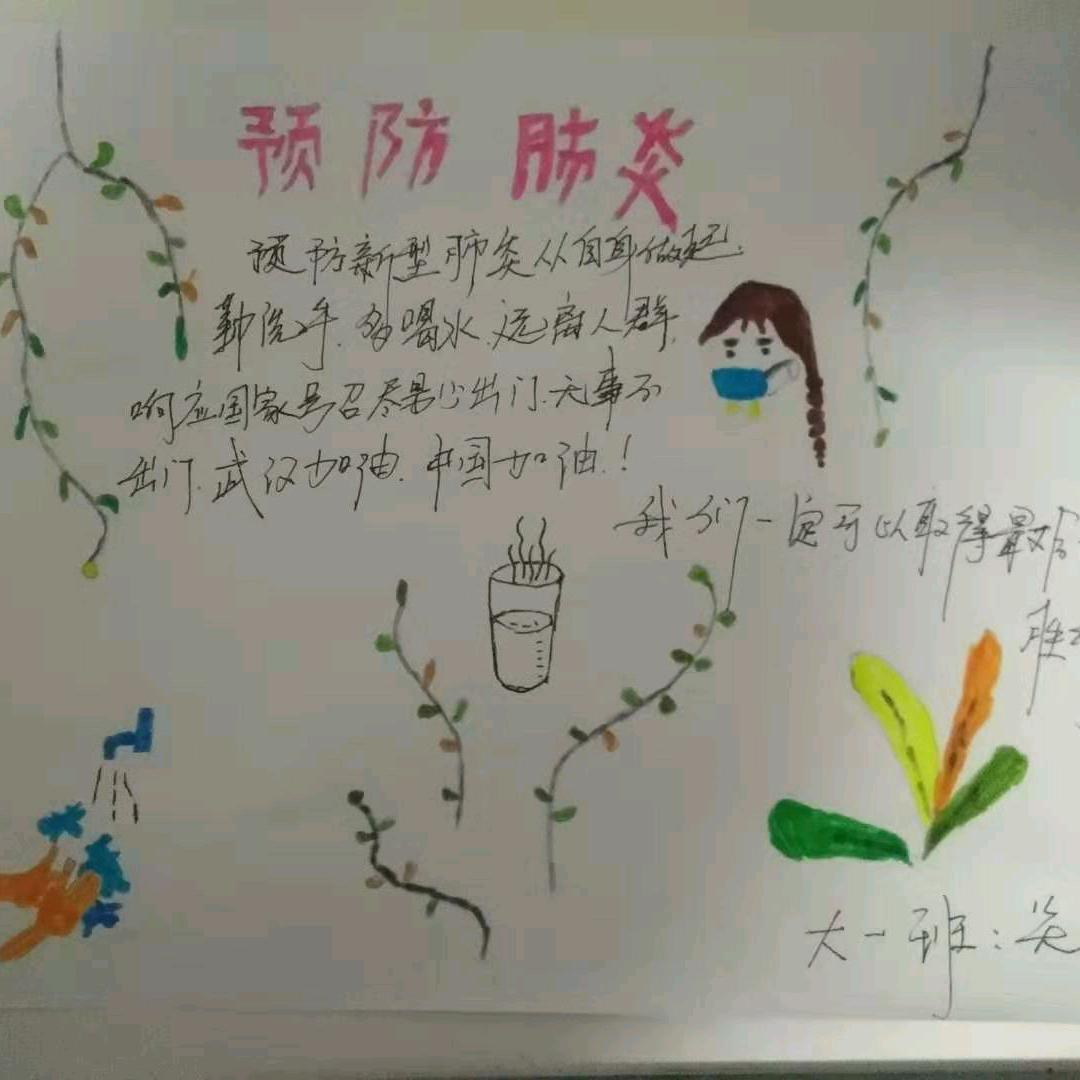 预防肺炎
预防新型肺炎从自身做起.
勤洗手.多喝水.远离人群.
响应国家号召尽量少出门.无事不
出门.武汉加油.中国加油.!
我们一定可以取得最后
胜
大一班: